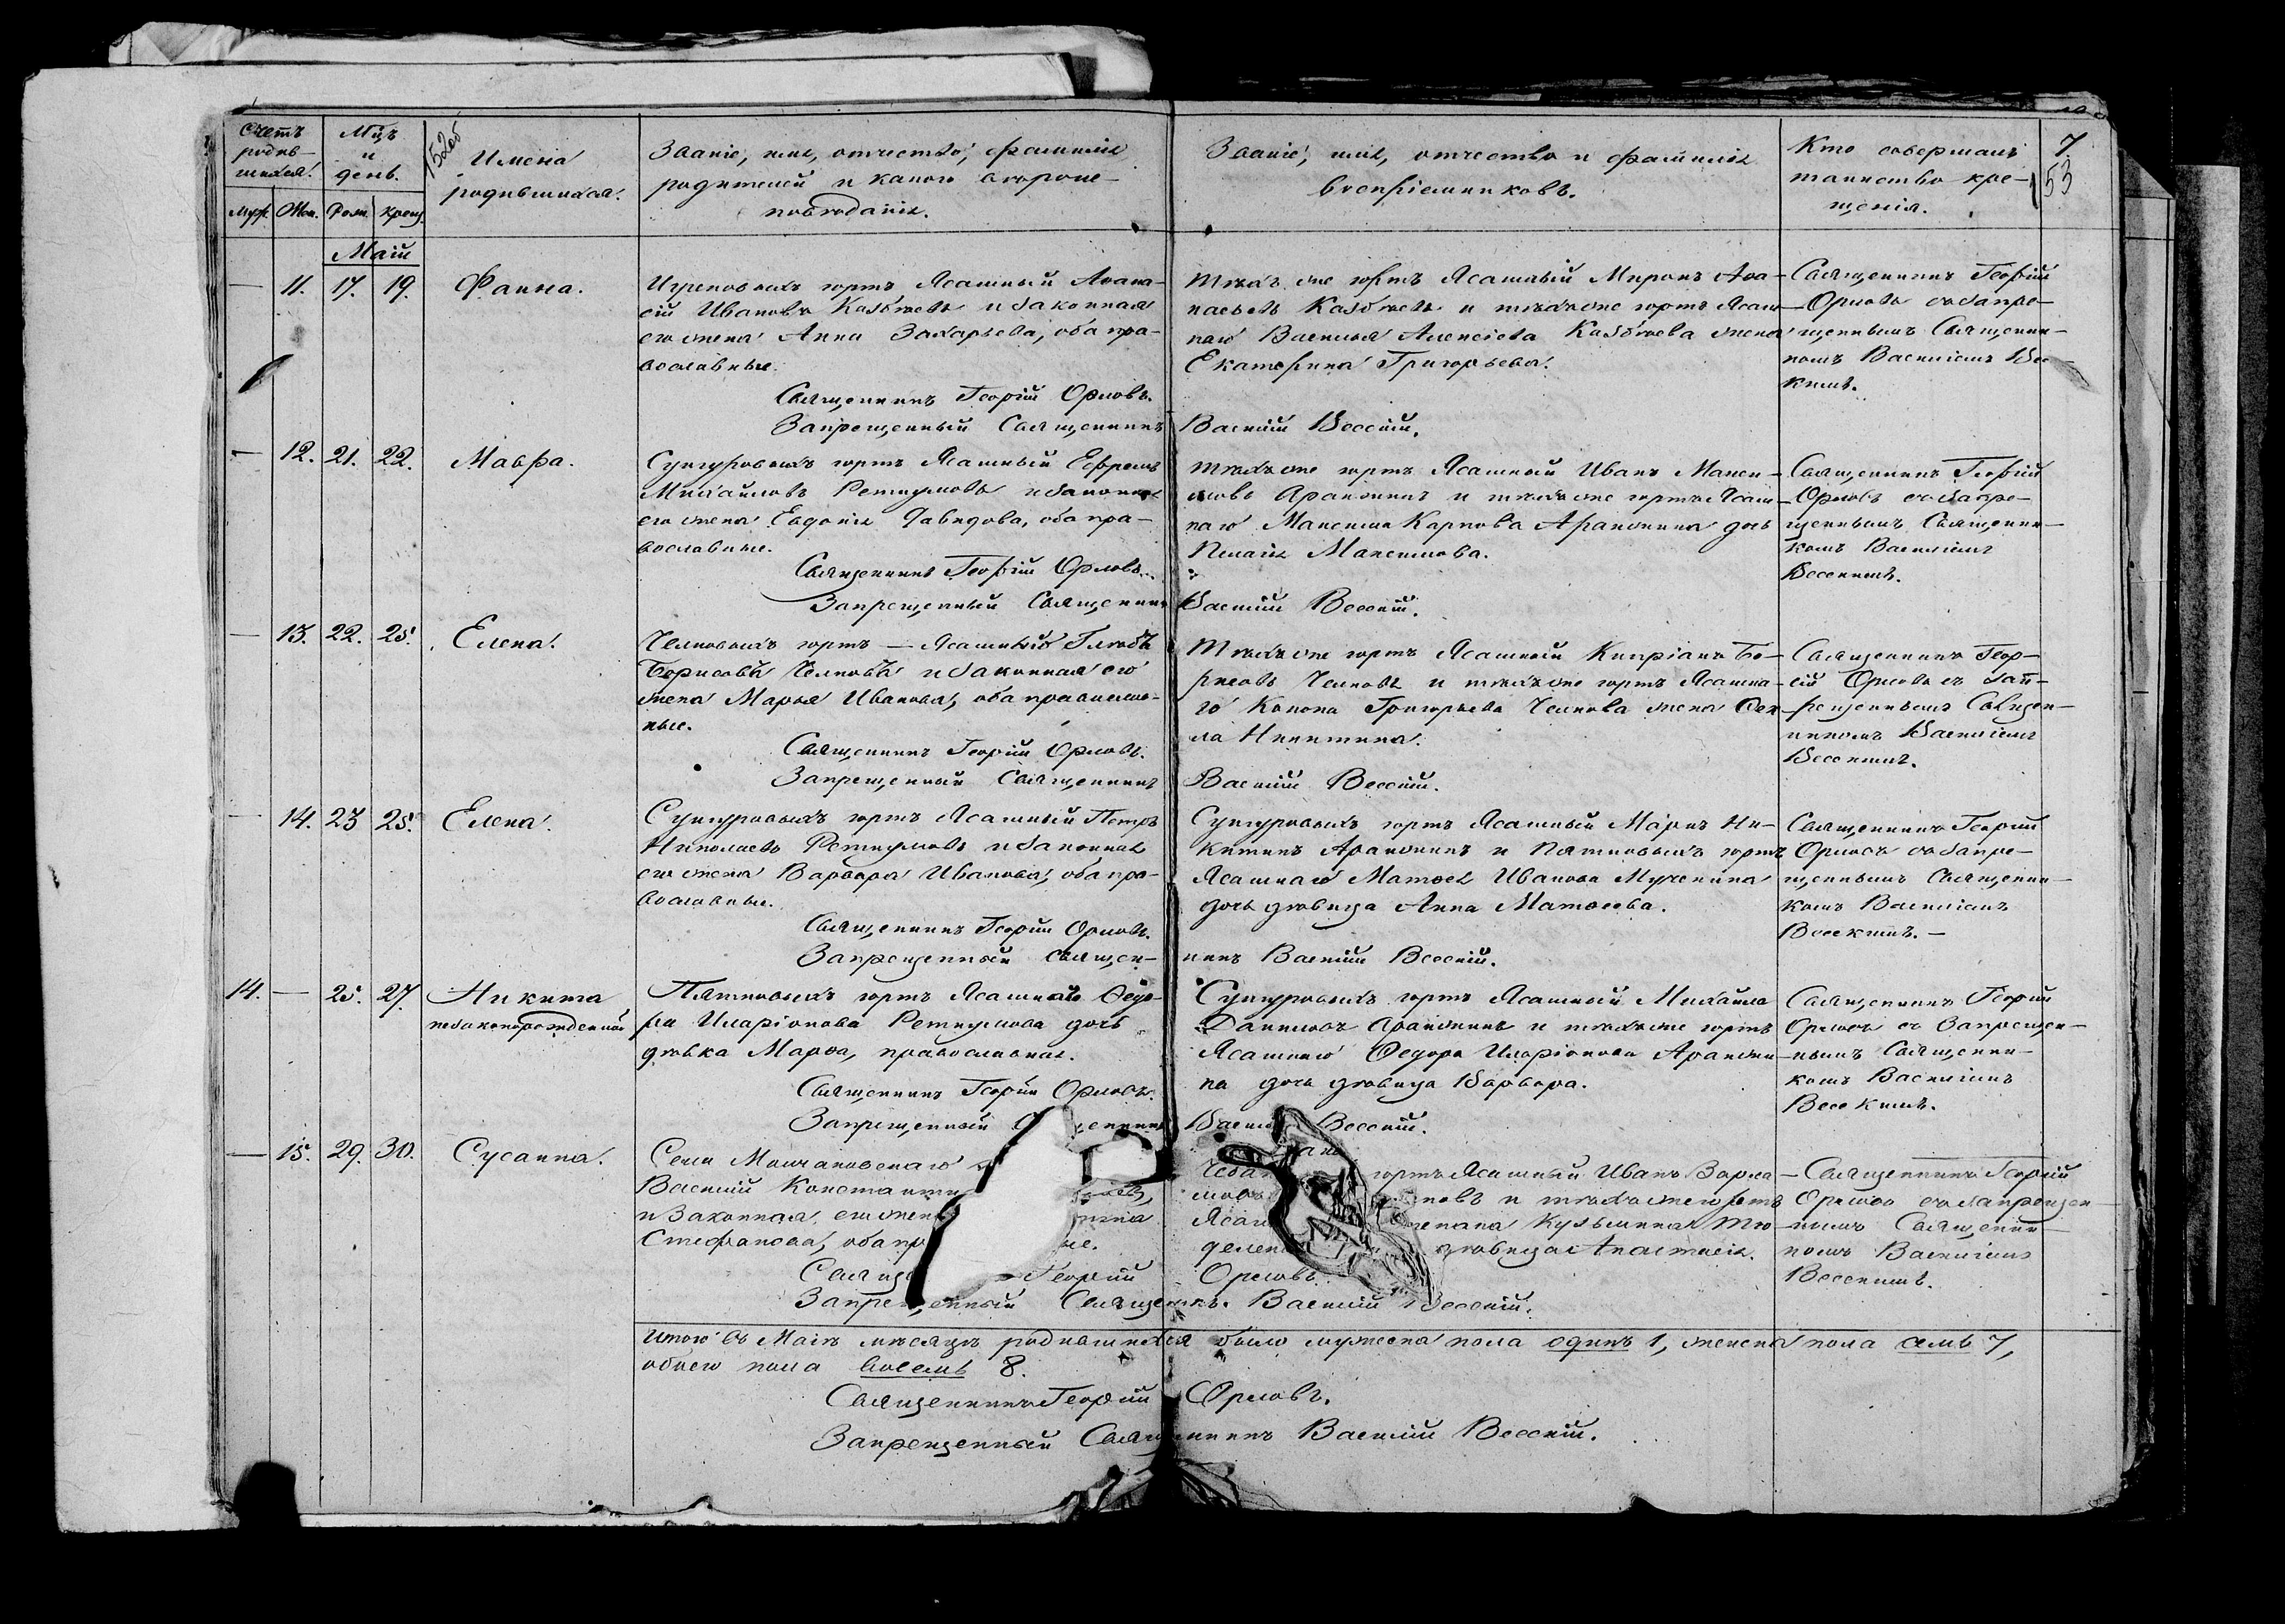 Счетъ
родив-
шихся.
Муж. Жен.
Мц̃ъ
и
день.
Рожд. крещ.
152об
Имена
родившихся.
Званіе, имя, отчество, фамилія
родителей и какого вѣроис-
повѣданія.
Званіе, имя, отчество и фамилія
воспріемниковъ.
Кто совершалъ
таинство кре-
щенія.
7
153
Маій
— 11. 17. 19. Фаина.
юртъ Ясашный Аѳана-
сій Ивановъ и законная
его жена Анна Захарьева, оба пра-
вославные.
Священникъ Георгій Орловъ.
Запрещенный Священникъ Василій Весскій.
Тѣхъ же юртъ Ясашный Миронъ Аѳа-
насьевъ и тѣхъ же юртъ Ясаш-
наго Василья Алексіева жена
Екатерина Григорьева.
Священникъ Георгій
Орловъ съ запре-
щеннымъ Священни-
комъ Василіемъ Вес-
скимъ.
— 12. 21. 22. Мавра.
Сунгуровыхъ юртъ Ясашный Ефремъ
Михайловъ Реткумовъ и законная
его жена Евдокія Давидова, оба пра-
вославные.
Священникъ Георгій Орловъ.
Запрещенный Священникъ Василій Весскій.
Тѣхъ же юртъ Ясашный Иванъ Макси-
мовъ Арангинъ и тѣхъ же юртъ Ясаш-
наго Максима Карпова Арангина дочь
Пелагія Максимова.
Священникъ Георгій
Орловъ съ запре-
щеннымъ Священни-
комъ Василіемъ
Весскимъ.
— 13. 22. 25. Елена.
Челновыхъ юртъ — Ясашный Глѣбъ
Борисовъ Челновъ и законная его
жена Марья Иванова, оба православ-
ные.
Священникъ Георгій Орловъ.
Запрещенный Священникъ Василій Весскій.
Тѣхъ же юртъ Ясашный Кипріанъ Бо-
рисовъ Челновъ и тѣхъ же юртъ Ясашна-
го Конона Григорьева Челнова жена Ѳек-
ла Никитина.
Священникъ Геор-
гій Орловъ съ зап-
рещеннымъ Священ-
никомъ Василіемъ
Весскимъ.
— 14. 23 25. Елена.
Сунгуровыхъ юртъ Ясашный Петръ
Николаевъ Реткумовъ и законная
его жена Варвара Иванова, оба пра-
вославные.
Священникъ Георгій Орловъ.
Запрещенный Священ-никъ Василій Весскій.
Сунгуровыхъ юртъ Ясашный Маркъ Ни-
китинъ Арангинъ и Пяткиовыхъ юртъ
Ясашнаго Матѳея Иванова Мученина
дочь дѣвица Анна Матѳеева.
Священникъ Георгій
Орловъ съ запре-
щеннымъ Священни-
комъ Василіемъ
Весскимъ. —
14. — 25. 27. Никита
незаконорожденный
юртъ Ясашнаго Ѳедо-
ра Иларіонова Реткумова дочь
дѣвка Марѳа, православная.
Священникъ Георгій Орловъ.
Запрещенный Василій Весскій.
Сунгуровыхъ юртъ Ясашный Михайло
Даниловъ Арангинъ и тѣхъ же юртъ
Ясашнаго Ѳедора Иларіонова Аранги-
на дочь дѣвица Варвара.
Священникъ Георгій
Орловъ съ Запрещен-
нымъ Священни-
комъ Василіемъ
Весскимъ.
— 15. 29. 30. Сусанна.
Села Молчановскаго
Василій
и Законная его жена
Стефанова, оба
Георгій Орловъ.
Запрещенный Священникъ. Василій Весскій.
юртъ Ясашный Иванъ Варла-
мовъ и тѣхъ же юртъ
Кузьмина Тю-
дѣвица Анастасія.
Священникъ Георгій
Орловъ съ запрещен-
нымъ Священни-
комъ Василіемъ
Весскимъ.
Итого въ Маіѣ мѣсяцѣ родившихся было мужеска пола одинъ 1, женска пола семь 7,
обоего пола восемь 8.
Священникъ Георгій Орловъ.
Запрещенный Священникъ Василій Весскій.